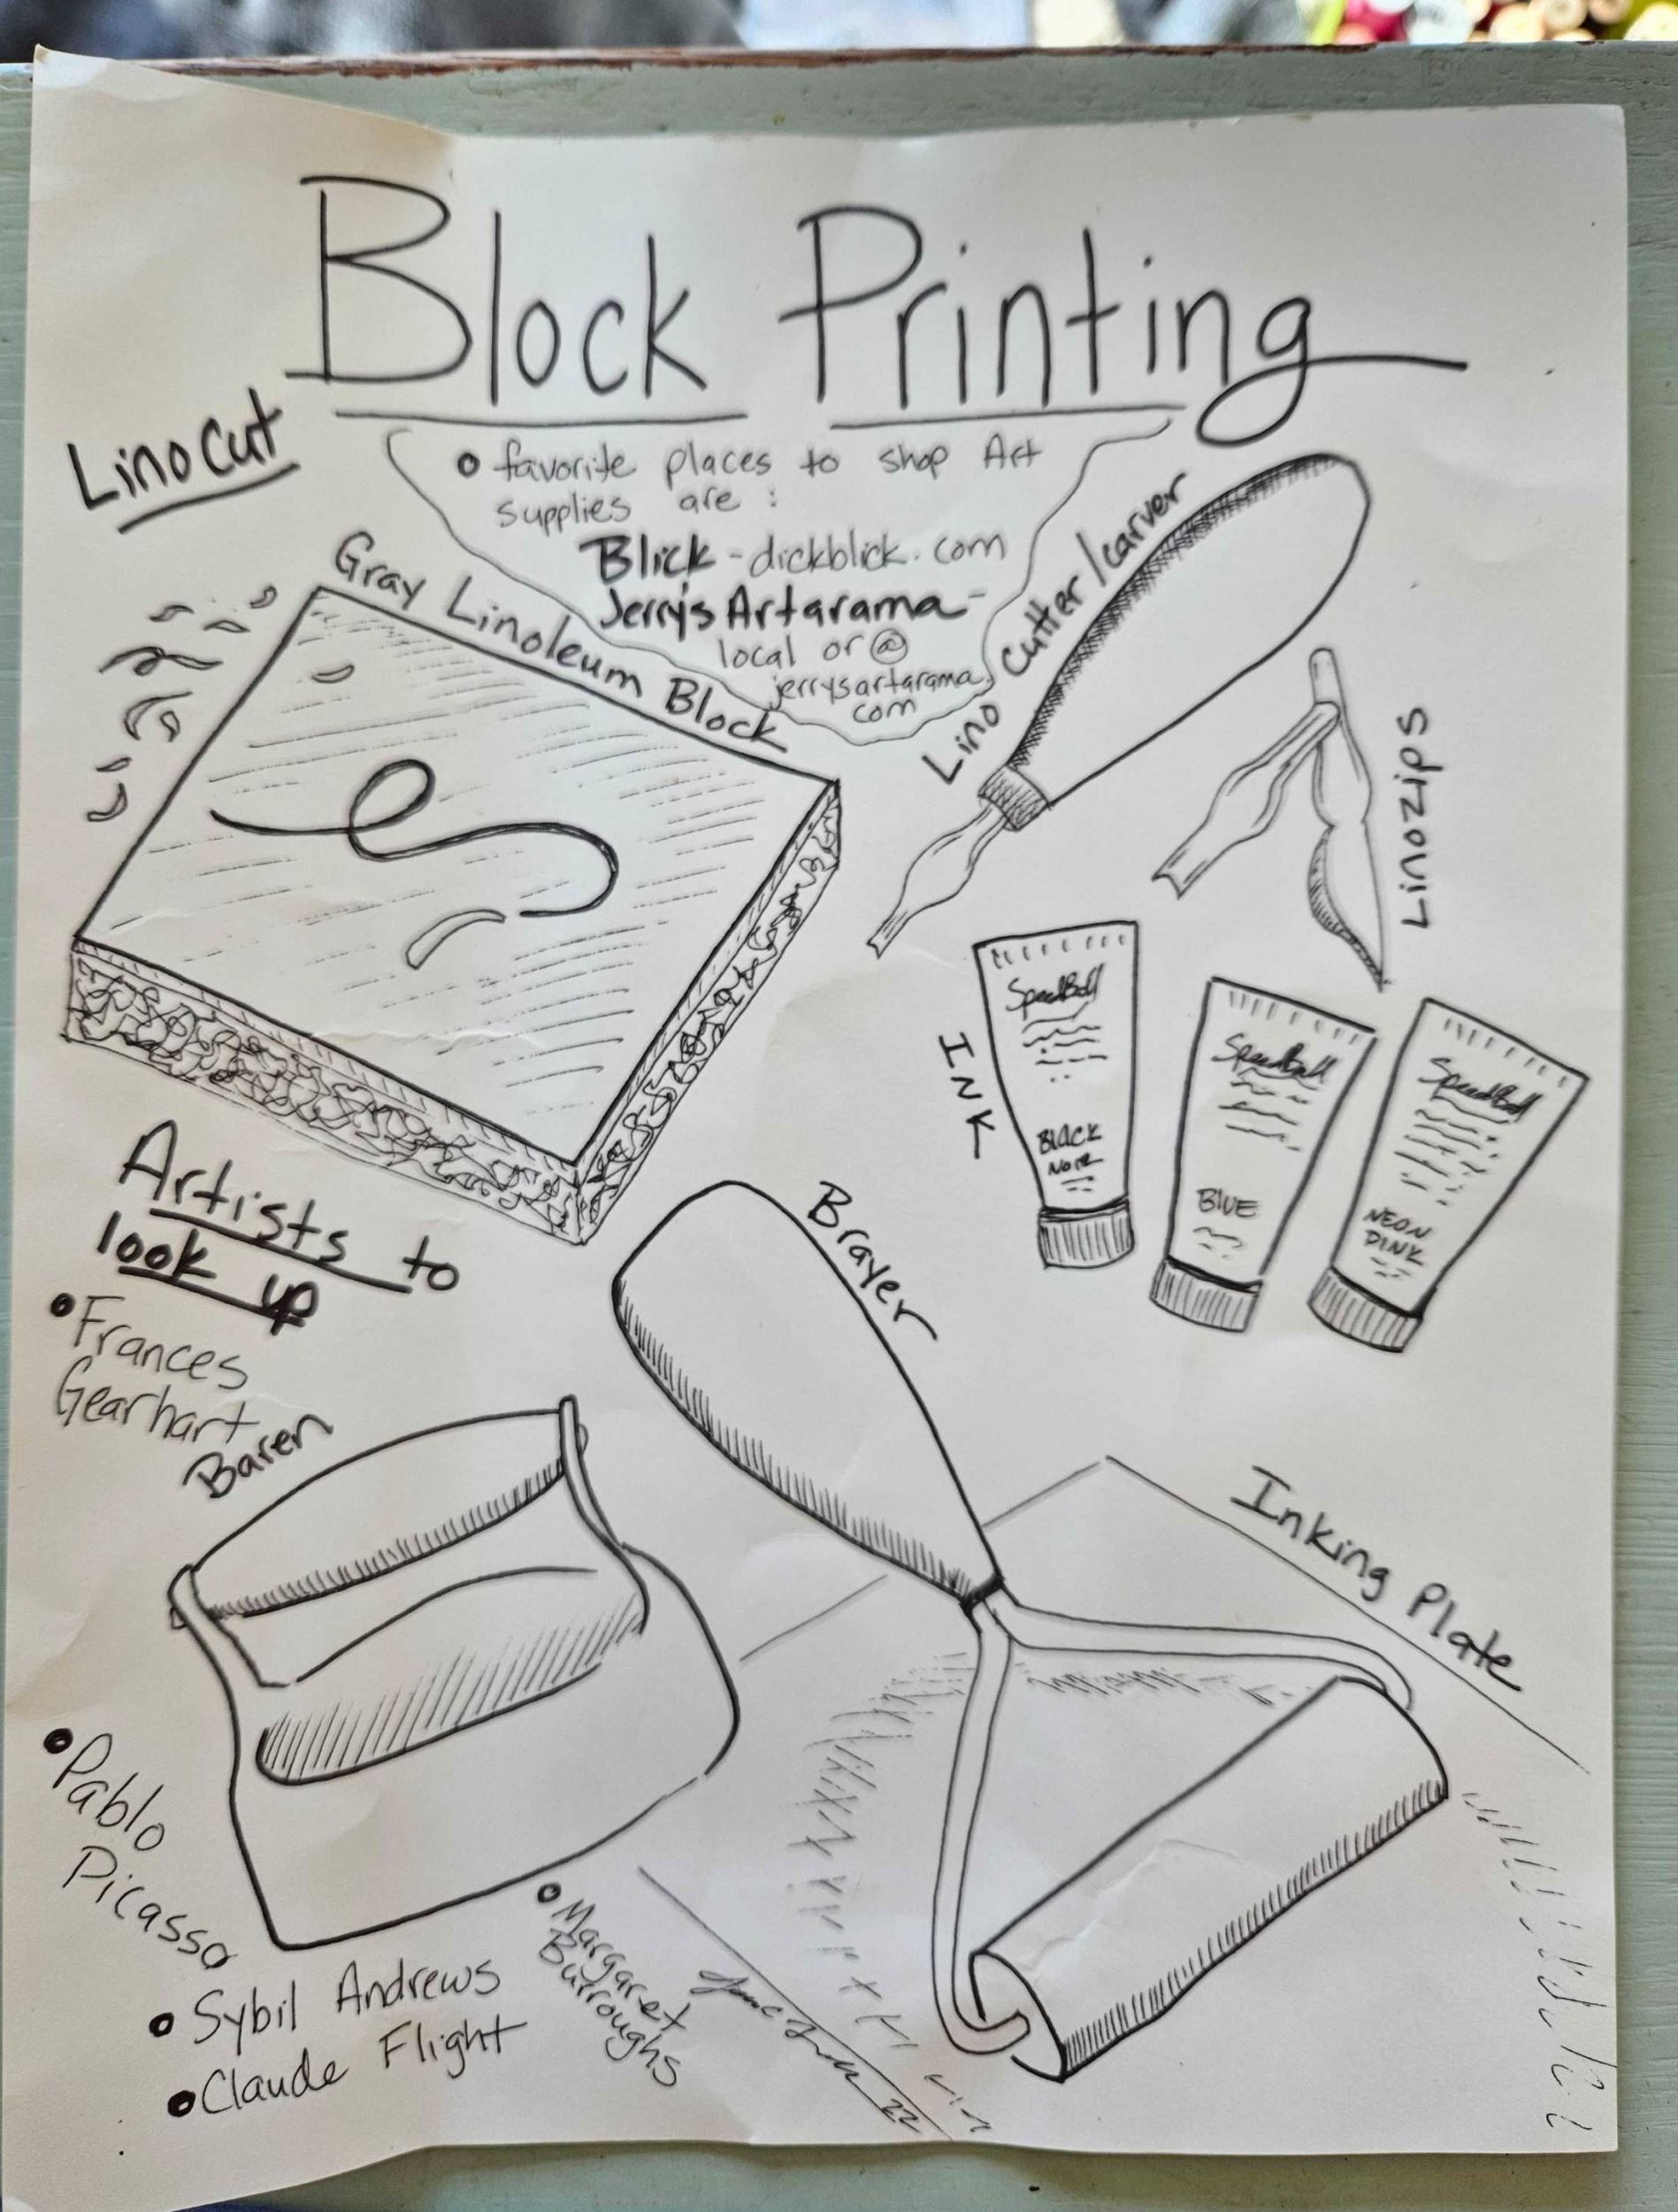 Block Printing
LinoCut
• favorite places to shop Art
supplies are :
Blick - dickblick.com
Jerry's Artarama -
local or @
jerrysartarama.
com
Gray Linoleum Block
Lino Cutter/carver
Linozips
INK
SpeedBall
BLACK
NOIR
SpeedBall
BLUE
SpeedBall
NEON
PINK
Artists to
look up
• Frances
Gearhart
Baren
Brayer
Inking Plate
• Pablo
Picasso
• Sybil Andrews
• Claude Flight
• Margaret
Burroughs
22